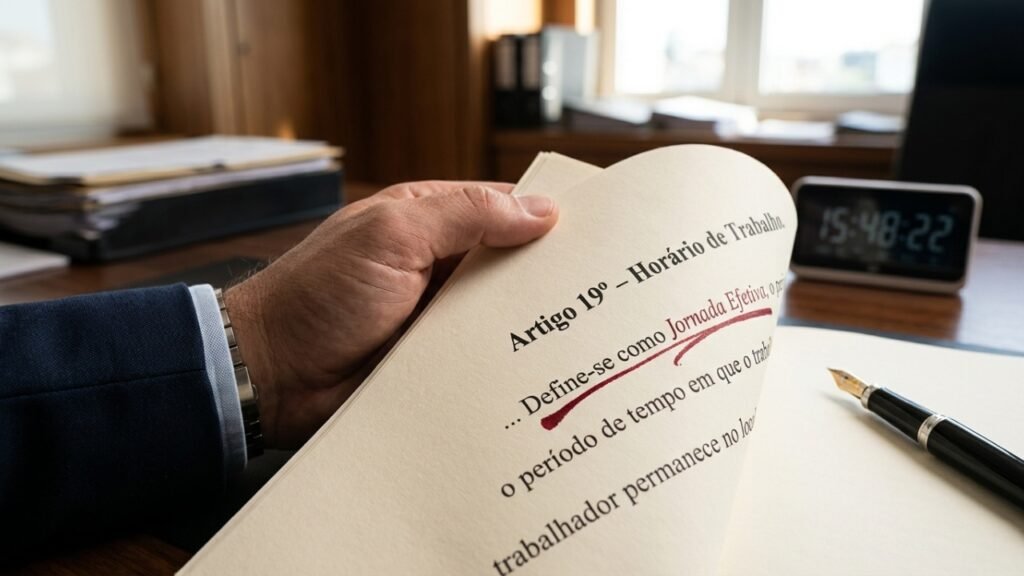 Artigo 19º – Horário de Trabalho.
... Define-se como Jornada Efetiva, o
o período de tempo em que o
trabalhador permanece no
15:48:22